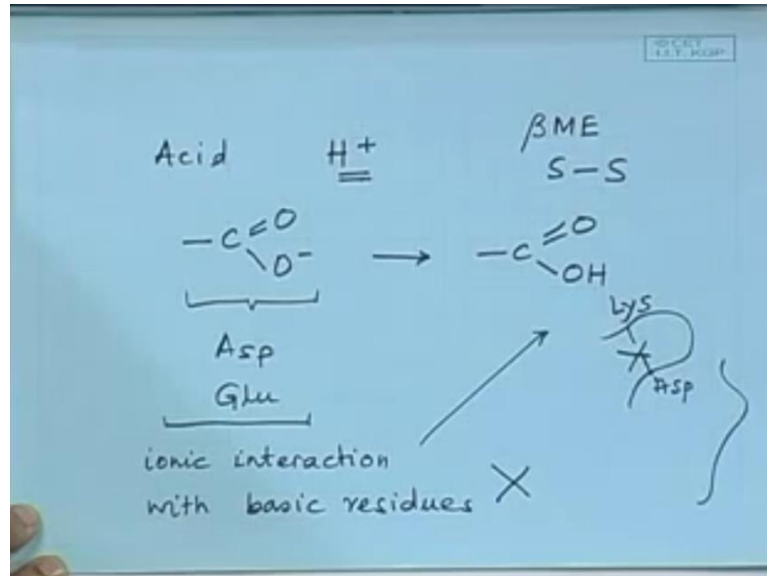 ©CET
I.I.T. KGP
Acid H+ βME
S-S
-C=O → -C=O
\O- \OH
Lys
Asp
Asp
Glu
ionic interaction
with basic residues X